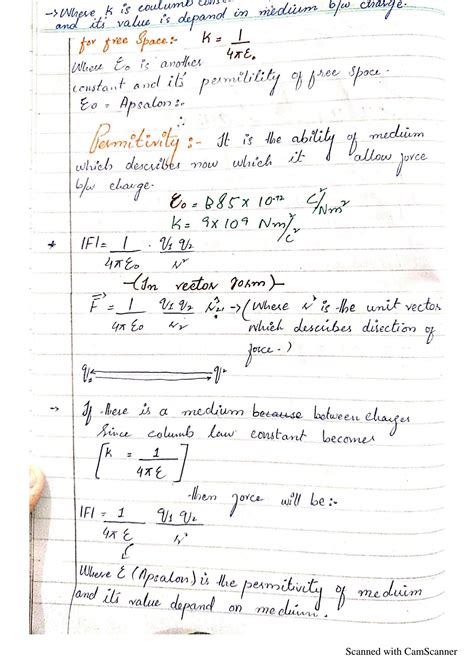 → Where K is coulumb cons
and its value is depand in medium b/w charge.
for free Space:- K = 1/4πε₀
Where ε₀ is another
constant and its permitility of free space.
ε₀ = Apsalon:-
Permitivity:- It is the ability of medium
which describes now which it allow force
b/w charge.
ε₀ = 8.85 x 10⁻¹² C²/Nm²
K = 9x109 Nm²/C²
* |F| = 1/4πε₀ · q₁ q₂/r²
(In vector form)
F⃗ = 1/4πε₀ q₁ q₂/r² r̂₂₁ → (Where r̂ is the unit vector
which describes direction of
force.)
q₁ q₂
→ If there is a medium because between charges
Since columb law constant becomes
[K = 1/4πε]
then force will be:-
|F| = 1/4πε q₁ q₂/r²
Where ε (Apsalon) is the permitivity of medium
and its value depand on medium.
Scanned with CamScanner